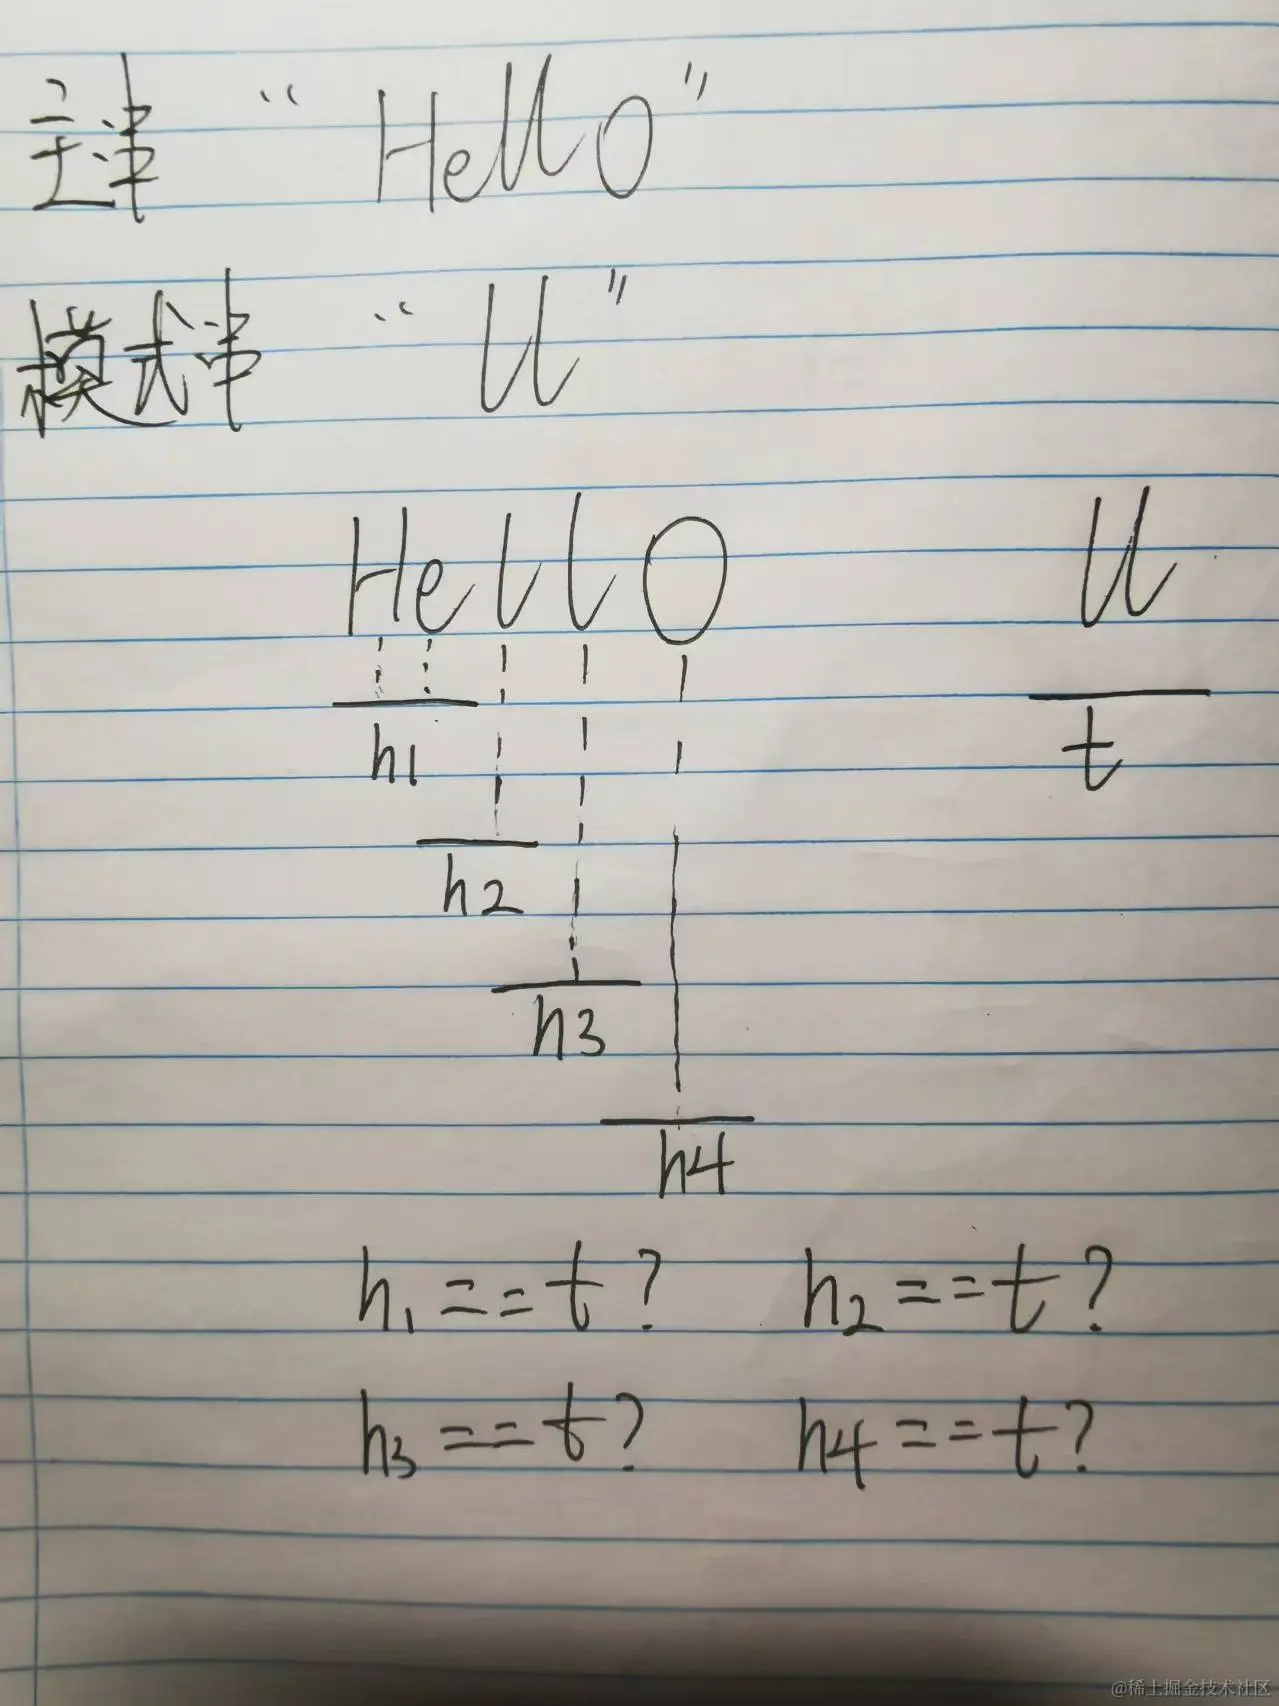 主串 “Hello”
模式串 “ll”
Hello ll
h1 t
h2
h3
h4
h1==t? h2==t?
h3==t? h4==t?
@稀土掘金技术社区